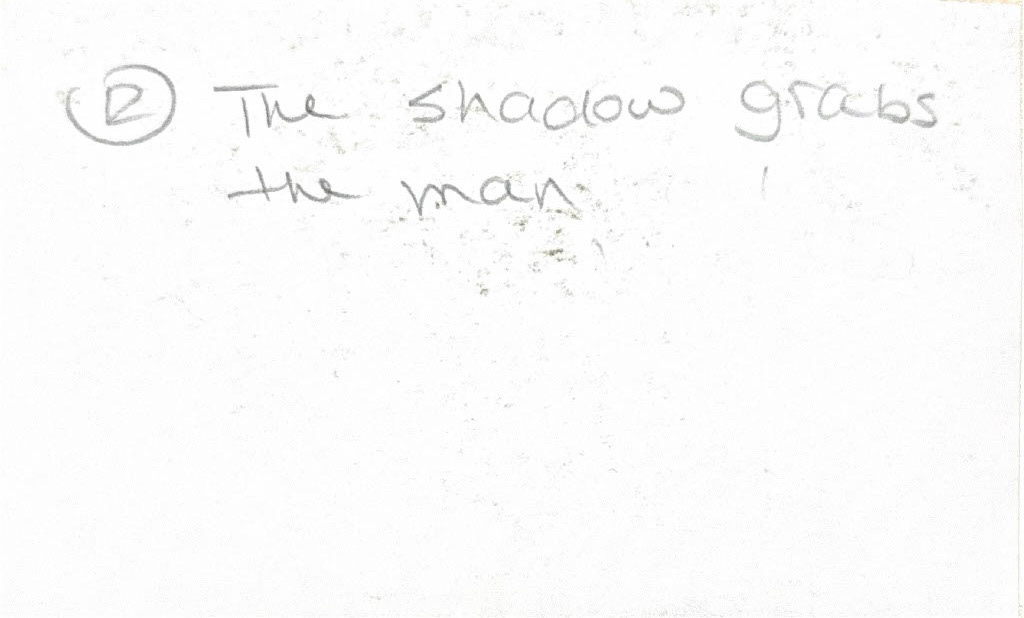 ② The shadow grabs
the man